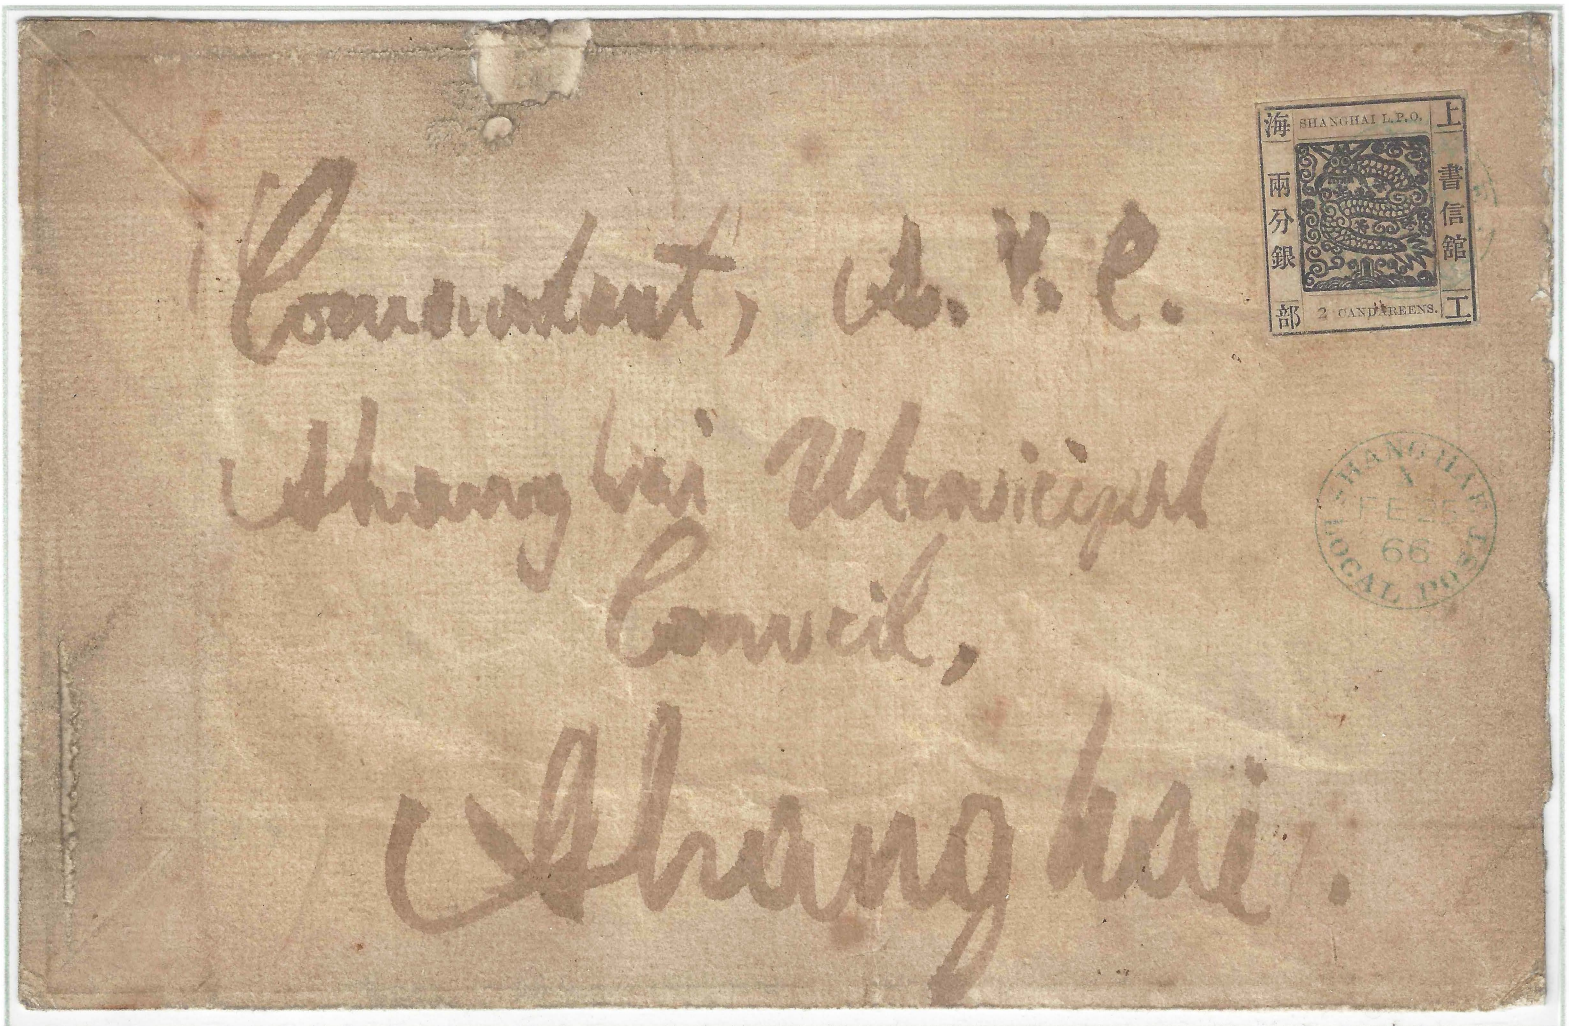 SHANGHAI L.P.O.
上海
書信館
兩分銀
工部
2 CANDAREENS.
Commandant, S. V. C.
Shanghai Municipal
Council,
Shanghai.
SHANGHAI
FE
66
LOCAL POST